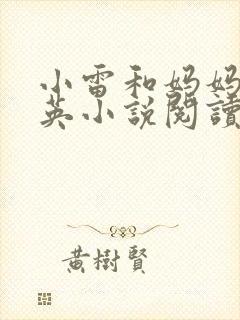 小雷和妈妈
英小說閱讀
黃樹賢